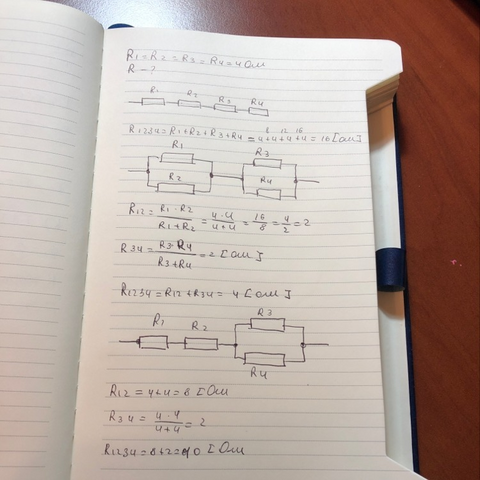 R1=R2=R3=R4=4 Ом
R-?
R1 R2 R3 R4
8 12 16
R1234=R1+R2+R3+R4=4+4+4+4=16[Ом]
R1 R3
R2 R4
R12=R1·R2/R1+R2=4·4/4+4=16/8=4/2=2
R34=R3·R4/R3+R4=2[Ом]
R1234=R12+R34=4[Ом]
R1 R2 R3
R4
R12=4+4=8[Ом
R34=4·4/4+4=2
R1234=8+2=10[Ом